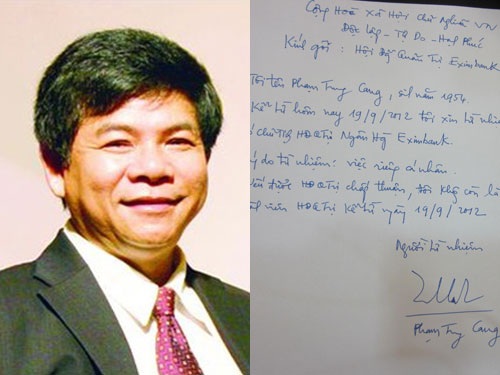 Cộng Hoà Xã Hội Chủ Nghĩa VN
Độc Lập - Tự Do - Hạnh Phúc
Kính gởi : Hội Đồng Quản Trị Eximbank
Tôi tên Phạm Trung Cang, sinh năm 1954
kể từ hôm nay 19/9/2012 tôi xin từ nhiệm
chủ tịch HĐQTrị Ngân Hàng Eximbank.
lý do từ nhiệm: việc riêng cá nhân.
được HĐQTrị chấp thuận, tôi không còn là
viên HĐQTrị kể từ ngày 19/9/2012
Người từ nhiệm
Phạm Trung Cang